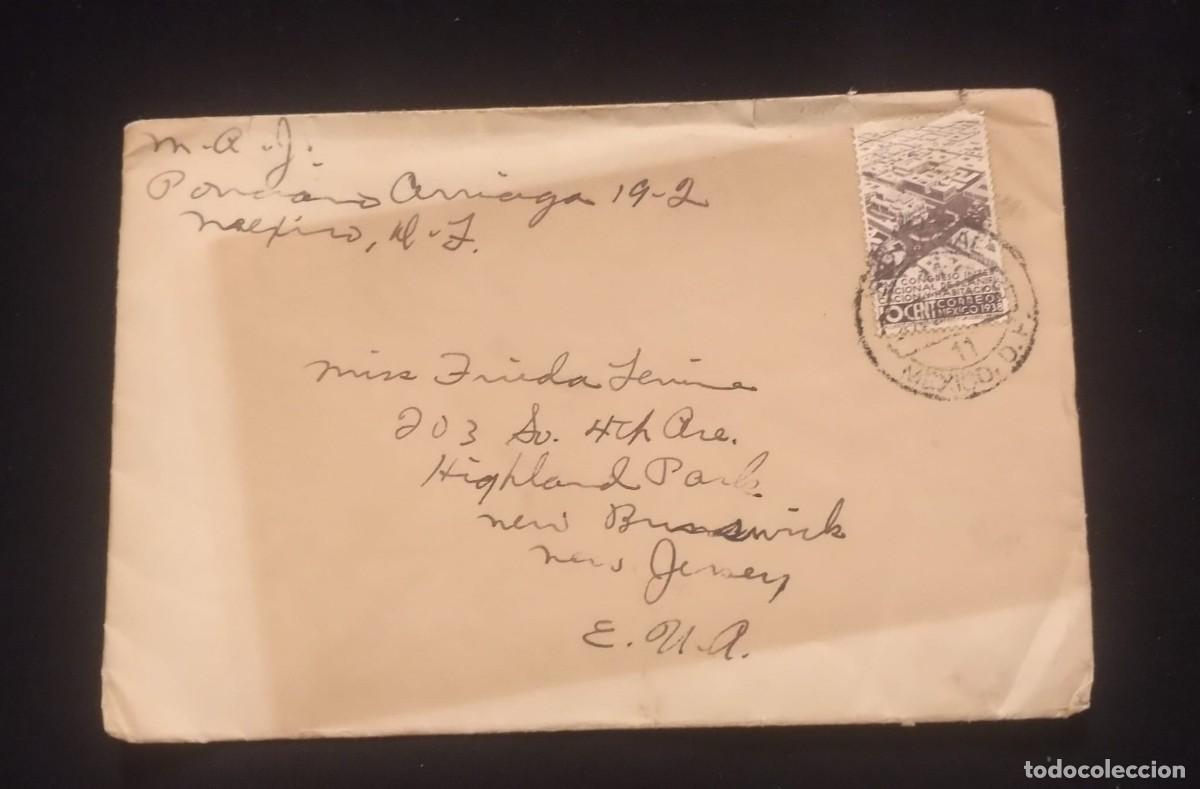 M.A.J.
Ponciano Arriaga 19-2
Mexico, D.F.
CONGRESO INTE
CIONAL
5 CENT CORREOS
MEXICO 1938
11
MEXICO, D.F.
Miss Frieda Levine
203 So. 4th Ave.
Highland Park
New Brunswick
New Jersey
E.U.A.
todocoleccion